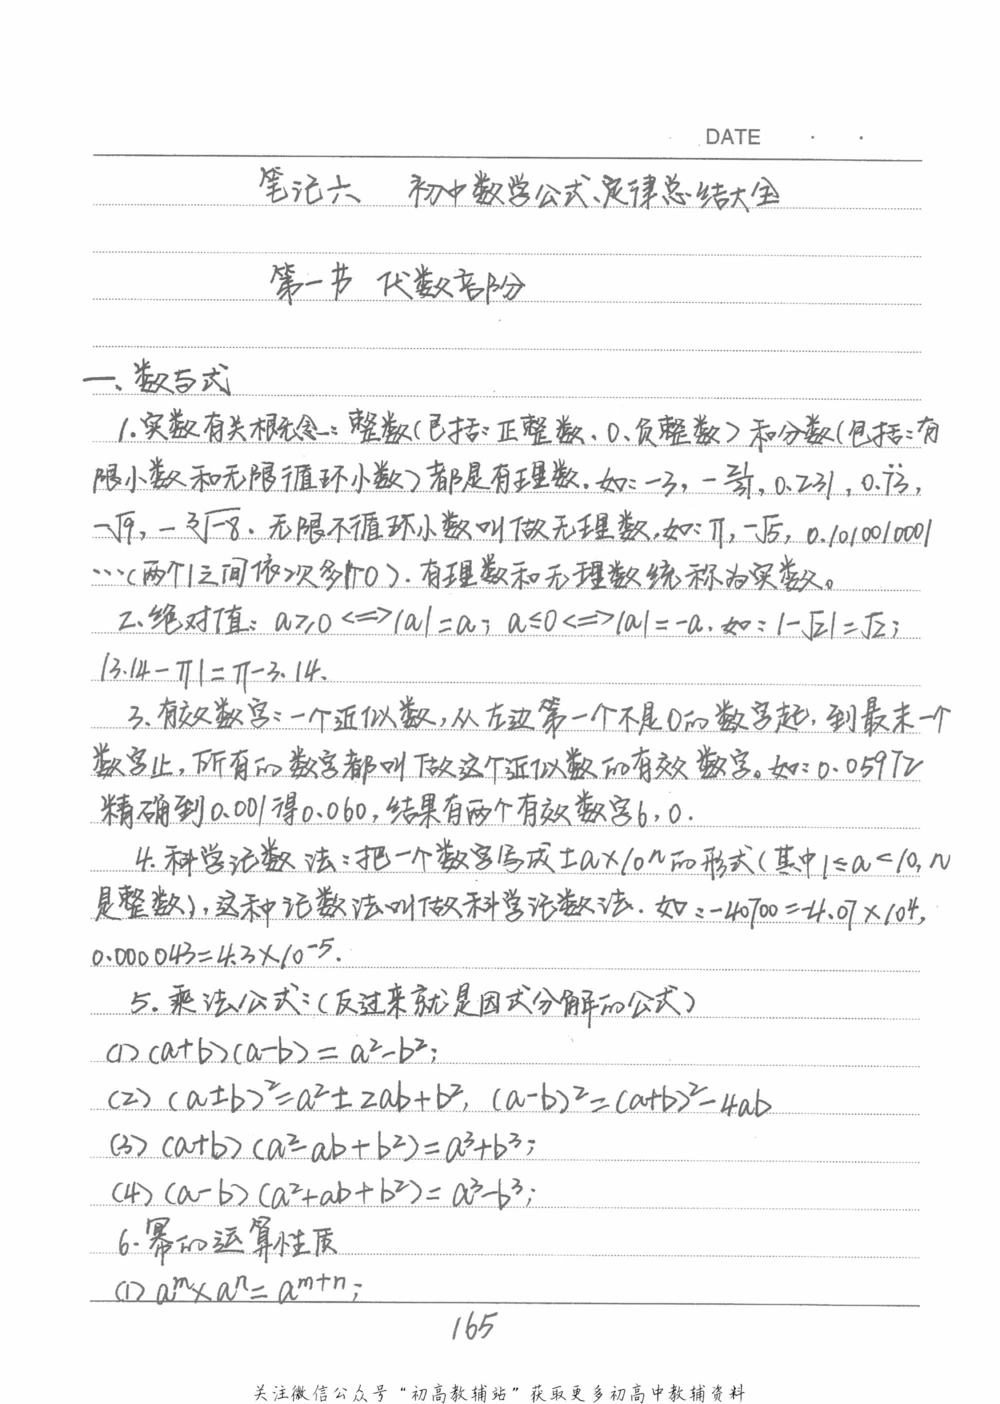 DATE · ·
笔记六 初中数学公式、定律总结大全
第一节 代数部分
一、数与式
1.实数有关概念:整数(包括:正整数、0、负整数)和分数(包括:有
限小数和无限循环小数)都是有理数.如:-3,
,0.231,0.7̇3̇,
-√9,-∛-8.无限不循环小数叫做无理数.如:π,-√5,0.1010010001
…(两个1之间依次多1个0).有理数和无理数统称为实数。
2.绝对值:a≥0<=>|a|=a;a≤0<=>|a|=-a.如:|-√2|=√2;
|3.14-π|=π-3.14.
3.有效数字:一个近似数,从左边第一个不是0的数字起,到最末一个
数字止,所有的数字都叫做这个近似数的有效数字。如:0.05972
精确到0.001得0.060,结果有两个有效数字6,0.
4.科学记数法:把一个数字写成±a×10ⁿ的形式(其中1≤a<10,n
是整数),这种记数法叫做科学记数法.如:-40700=-4.07×10⁴,
0.000043=4.3×10⁻⁵.
5.乘法公式:(反过来就是因式分解的公式)
(1)(a+b)(a-b)=a²-b²;
(2)(a±b)²=a²±2ab+b²,(a-b)²=(a+b)²-4ab
(3)(a+b)(a²-ab+b²)=a³+b³;
(4)(a-b)(a²+ab+b²)=a³-b³;
6.幂的运算性质
(1)aᵐ×aⁿ=aᵐ⁺ⁿ;
165
关注微信公众号“初高教辅站”获取更多初高中教辅资料